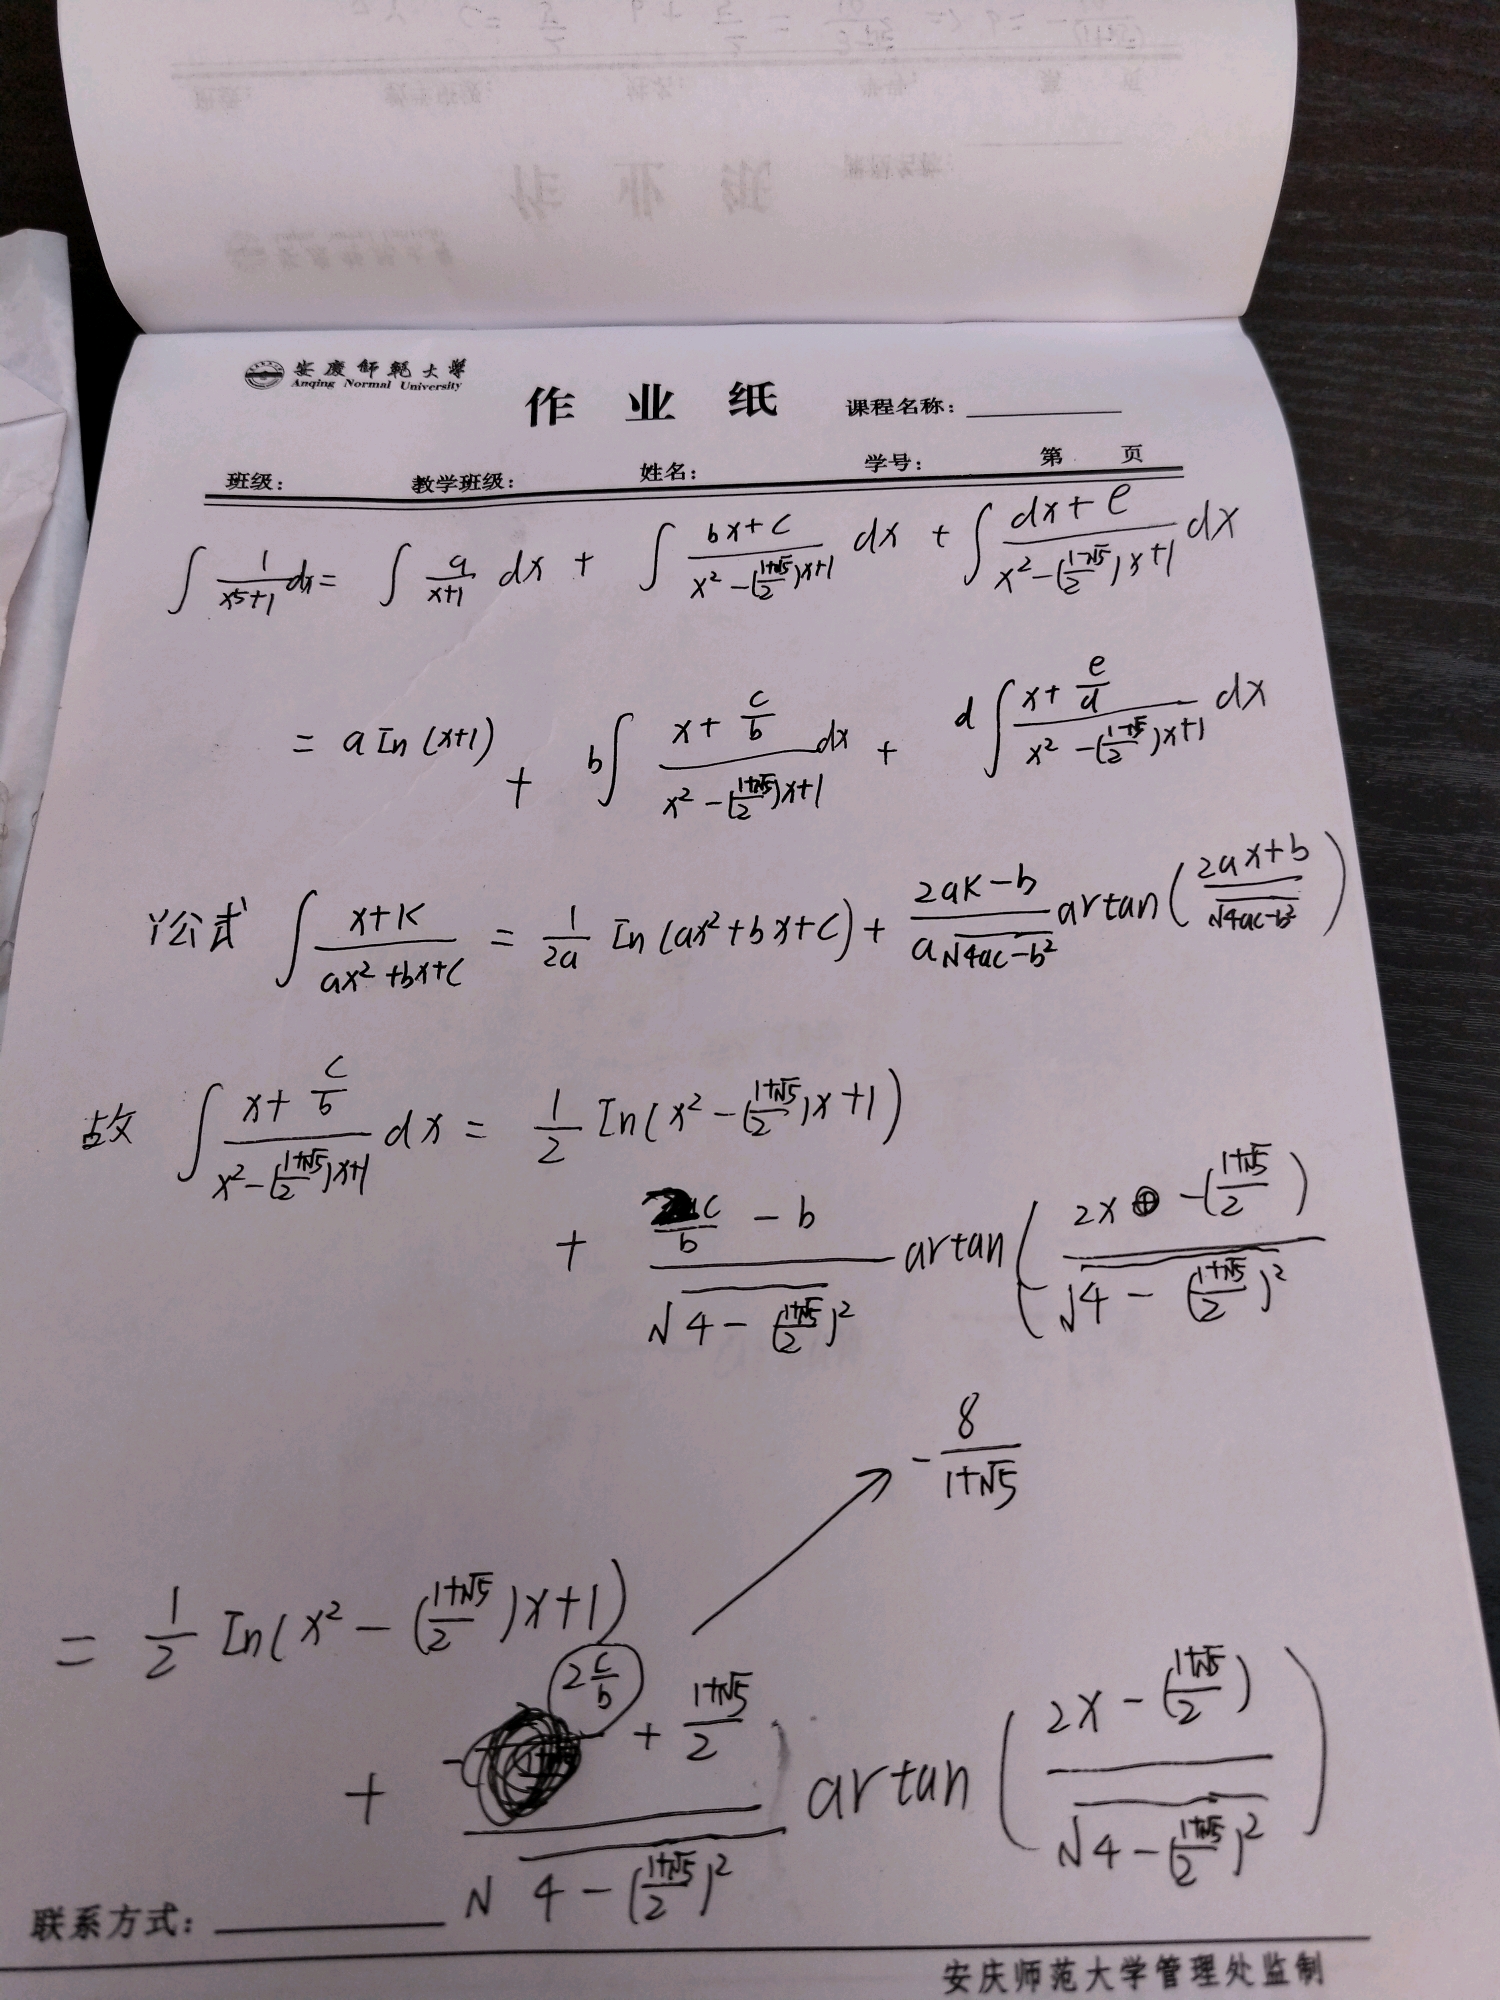 安庆师范大学
Anqing Normal University
作 业 纸 课程名称:
班级: 教学班级: 姓名: 学号: 第 页
∫ 1/(x⁵+1) dx = ∫ a/(x+1) dx + ∫ (bx+c)/(x²-((1+√5)/2)x+1) dx + ∫ (dx+e)/(x²-((1-√5)/2)x+1) dx
= a In(x+1) + b∫ (x+c/b)/(x²-((1+√5)/2)x+1) dx + d∫ (x+e/d)/(x²-((1-√5)/2)x+1) dx
公式 ∫ (x+k)/(ax²+bx+c) = 1/(2a) In(ax²+bx+c) + (2ak-b)/(a√(4ac-b²)) artan((2ax+b)/√(4ac-b²))
故 ∫ (x+c/b)/(x²-((1+√5)/2)x+1) dx = 1/2 In(x²-((1+√5)/2)x+1)
+ (c/b - b)/√(4-((1+√5)/2)²) artan((2x-((1+√5)/2))/√(4-((1+√5)/2)²))
-8/(1+√5)
= 1/2 In(x²-((1+√5)/2)x+1)
+ (2c/b + (1+√5)/2)/√(4-((1+√5)/2)²) artan((2x-((1+√5)/2))/√(4-((1+√5)/2)²))
联系方式:
安庆师范大学管理处监制